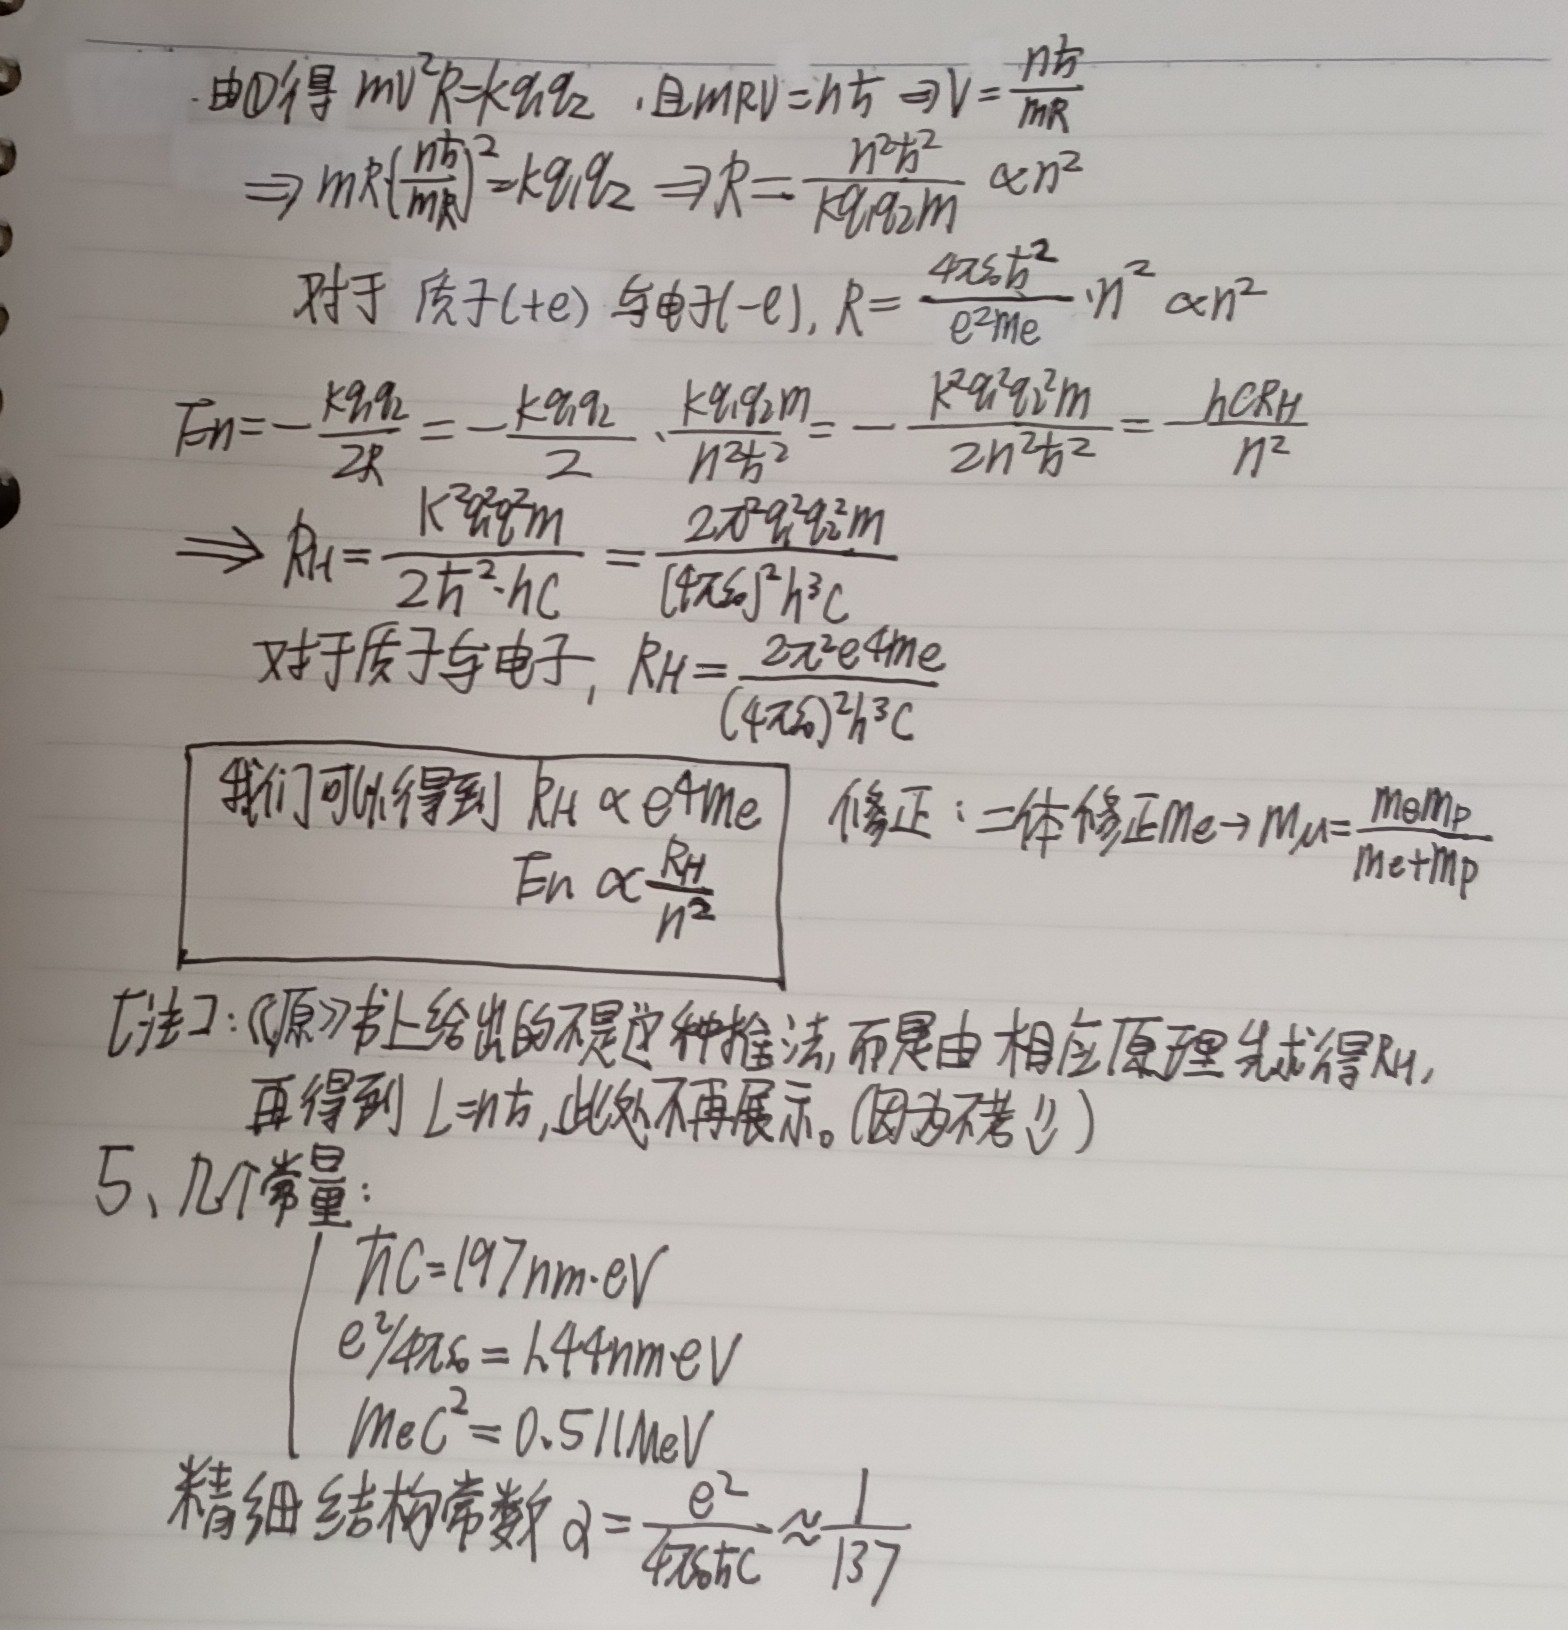 由①得 mV²R=kq₁q₂ ,且mRV=nħ ⇒V=nħ/mR
⇒ mR(nħ/mR)²=kq₁q₂ ⇒R=n²ħ²/kq₁q₂m ∝n²
对于 质子(+e) 与电子(-e), R=4πε₀ħ²/e²me·n² ∝n²
En=-kq₁q₂/2R=-kq₁q₂/2·kq₁q₂m/n²ħ²=-k²q₁²q₂²m/2n²ħ²=-hcRH/n²
⇒ RH=k²q₁²q₂²m/2ħ²·hc=2π²q₁²q₂²m/(4πε₀)²h³c
对于质子与电子, RH=2π²e⁴me/(4πε₀)²h³c
我们可以得到 RH∝e⁴me
En∝RH/n²
修正:二体修正me→mμ=memp/me+mp
[注]:《原》书上给出的不是这种推法,而是由相应原理先求得RH,
再得到 L=nħ,此处不再展示。(因为不考)
5、几个常量:
ħc=197nm·eV
e²/4πε₀=1.44nm·eV
mec²=0.511MeV
精细结构常数α=e²/4πε₀ħc≈1/137